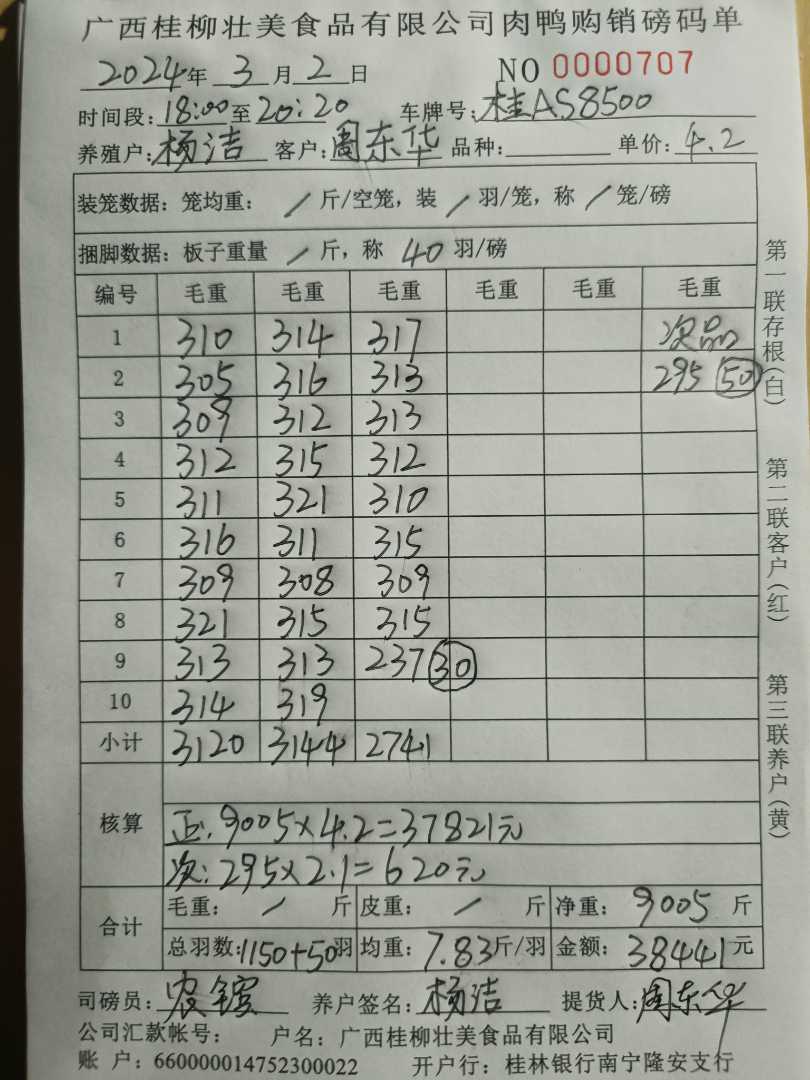 广西桂柳壮美食品有限公司肉鸭购销磅码单
2024年 3月 2日 NO 0000707
时间段:18:00至20:20 车牌号:桂AS8500
养殖户:杨洁 客户:周东华 品种: 单价:4.2
装笼数据: 笼均重: / 斤/空笼, 装 / 羽/笼, 称 / 笼/磅
捆脚数据: 板子重量 / 斤, 称 40 羽/磅
编号 毛重 毛重 毛重 毛重 毛重 毛重
1 310 314 317 次品
2 305 316 313 295 50
3 309 312 313
4 312 315 312
5 311 321 310
6 316 311 315
7 309 308 309
8 321 315 315
9 313 313 237 30
10 314 319
小计 3120 3144 2741
核算
正:9005×4.2=37821元
次:295×2.1=620元
合计
毛重: / 斤 皮重: / 斤 净重: 9005 斤
总羽数:1150+50羽 均重: 7.83斤/羽 金额: 38441元
司磅员: 养户签名: 杨洁 提货人:周东华
公司汇款帐号: 户名: 广西桂柳壮美食品有限公司
账 户: 660000014752300022 开户行: 桂林银行南宁隆安支行
第一联存根(白)
第二联客户(红)
第三联养户(黄)